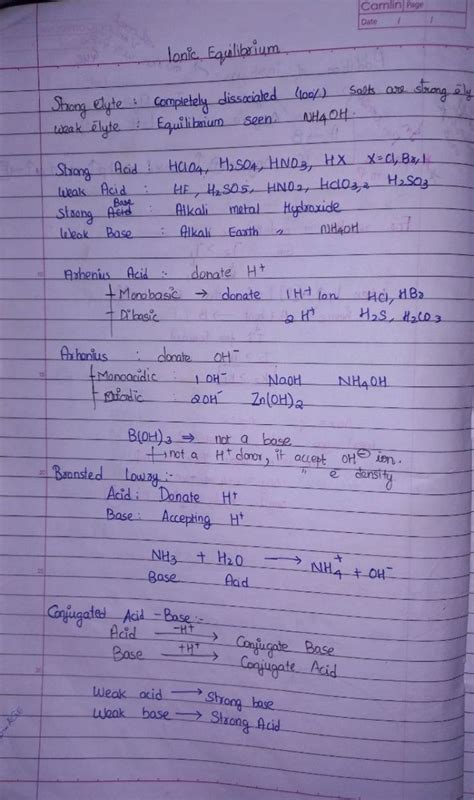 Camlin Page
Date / /
Ionic Equilibrium
Strong élyte : Completely dissociated (100%) Salts are strong ély
Weak élyte : Equilibrium seen NH4OH.
Strong Acid : HClO4, H2SO4, HNO3, HX X=Cl, Br, I
Weak Acid : HF, H2SO5, HNO2, HClO3,2 H2SO3
Strong Base : Alkali metal Hydroxide
Weak Base : Alkali Earth " NH4OH
Arhenius Acid :- donate H+
Monobasic → donate 1H+ ion HCl, HBr
Dibasic 2 H+ H2S, H2CO3
Arhenius : donate OH-
Monoacidic : 1 OH- NaOH NH4OH
Diacidic : 2OH- Zn(OH)2
B(OH)3 ⇒ not a base
↳ not a H+ donor, it accept OH⊖ ion.
" e density
Bronsted Lowry :-
Acid : Donate H+
Base : Accepting H+
NH3 + H2O → NH4+ + OH-
Base Acid
Conjugated Acid - Base :-
Acid -H+→ Conjugate Base
Base +H+→ Conjugate Acid
Weak acid → Strong base
Weak base → Strong Acid